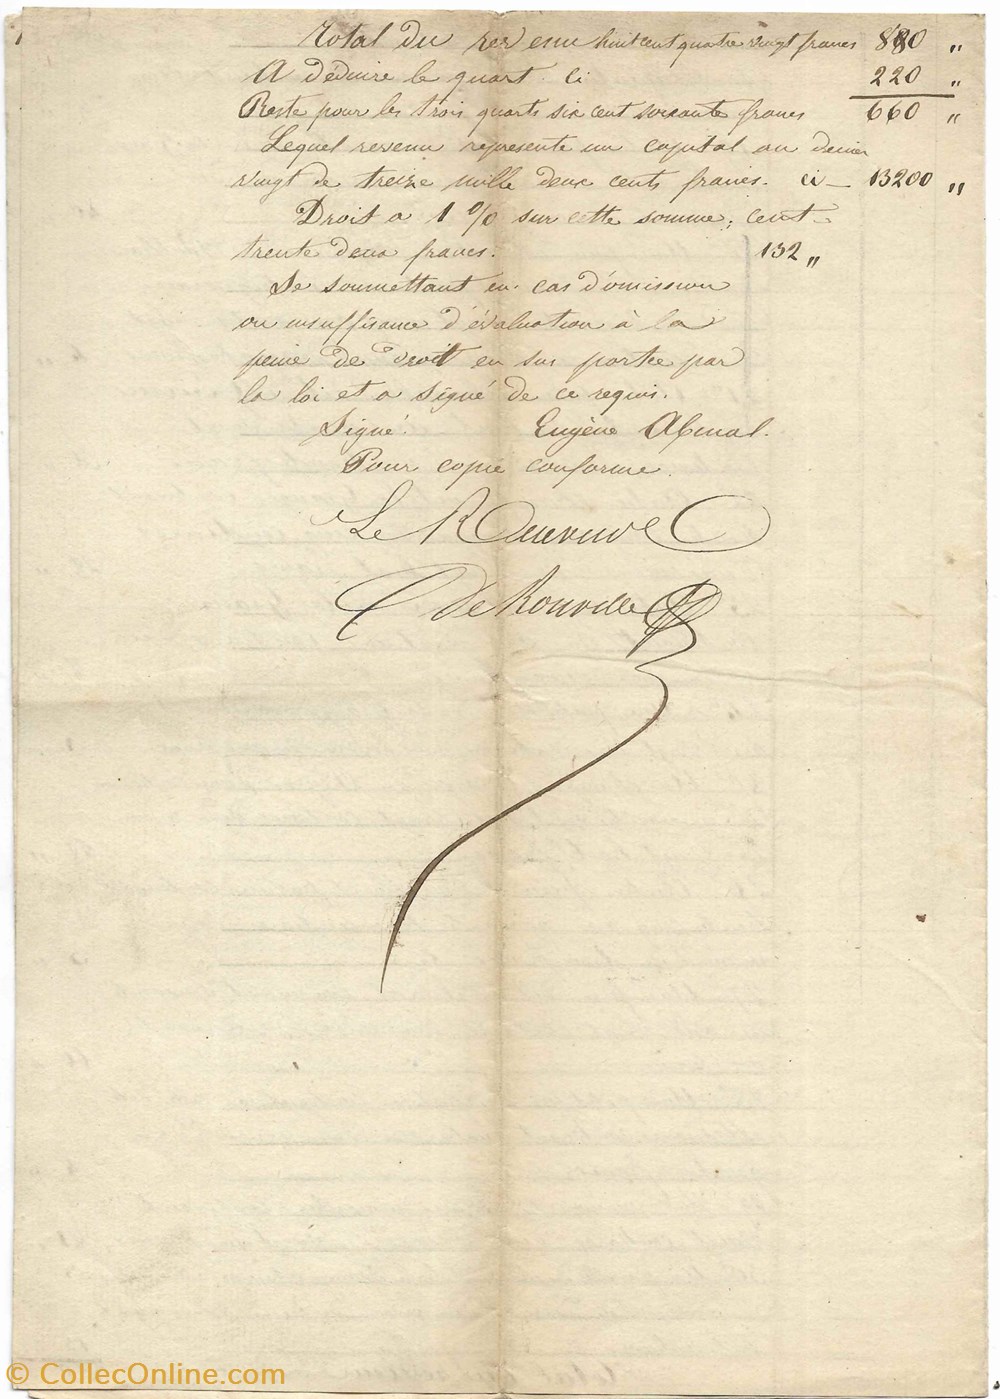 Total du revenu huit cent quatre vingt francs 880 "
A déduire le quart. Ci 220 "
Reste pour les trois quarts six cent soixante francs 660 "
Lequel revenu represente un capital au denier
vingt de treize mille deux cents francs. ci — 13200 "
Droit a 1 % sur cette somme; cent
trente deux francs. 132 "
Se soumettant en cas d'omission
ou insuffisance d'évaluation à la
peine de droit en sus portée par
la loi et a signé de ce requis.
Signé. Eugène
Pour copie conforme.
Le Receveur
de Rouville
© CollecOnline.com